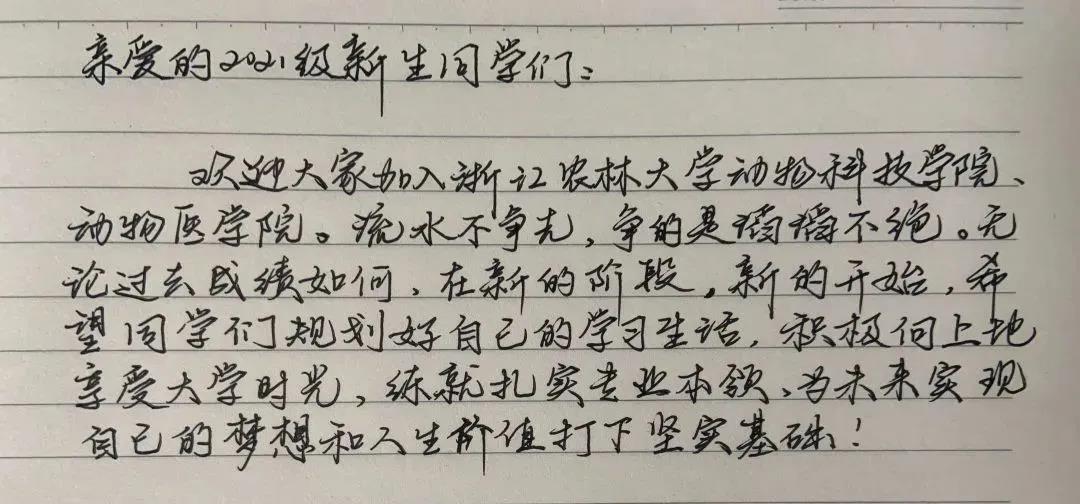 亲爱的2021级新生同学们：
欢迎大家加入浙江农林大学动物科技学院、
动物医学院。流水不争先，争的是滔滔不绝。无
论过去成绩如何，在新的阶段，新的开始，希
望同学们规划好自己的学习生活，积极向上地
享受大学时光，练就扎实专业本领，为未来实现
自己的梦想和人生价值打下坚实基础！